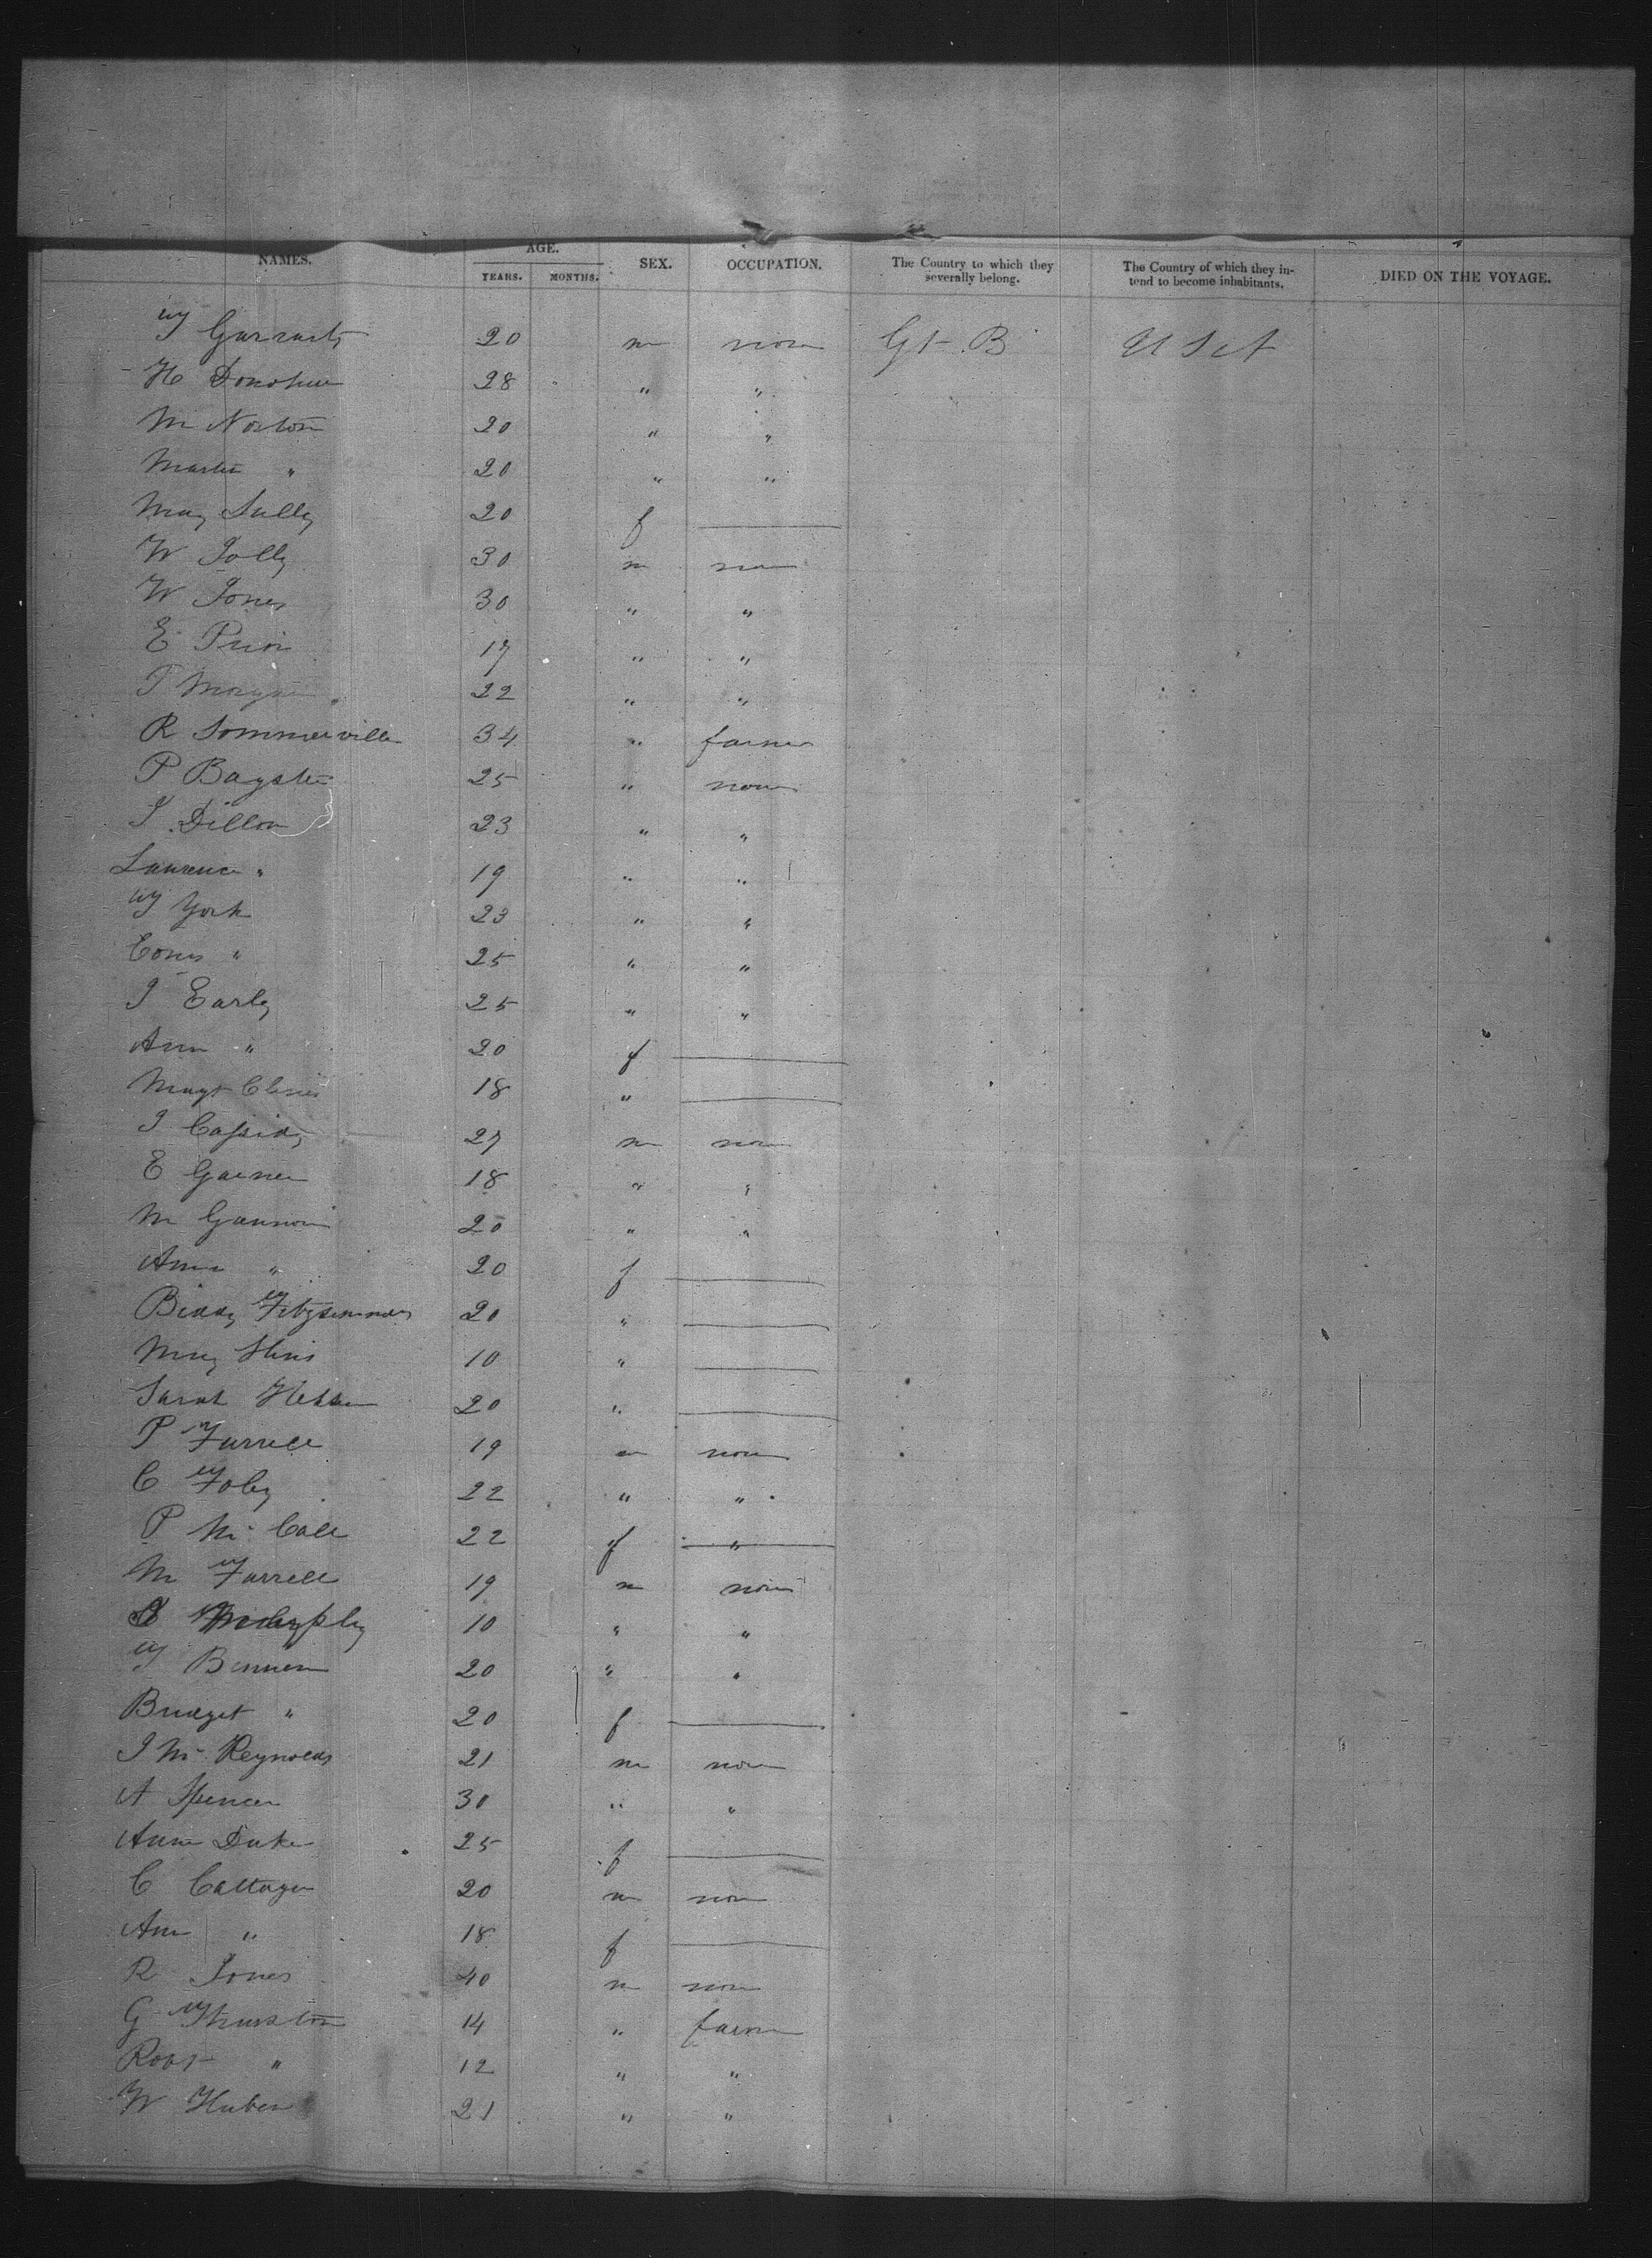 NAMES. AGE. SEX. OCCUPATION. The Country to which they severally belong. The Country of which they intend to become inhabitants. DIED ON THE VOYAGE.
YEARS. MONTHS.
T 20 m none Gt. B U S A
H Donohue 28 " "
M Norton 20 " "
Martin " 20 " "
Mary Lully 20 f
W Jolly 30 m none
W Jones 30 " "
E Prior 17 " "
22 " "
R Sommerville 34 " farmer
P Bayster 25 " none
J Dillon 23 " "
Lawrence " 19 " "
T York 23 " "
" 25 " "
J Early 25 " "
Ann " 20 f
Magt 18 "
J Cassidy 27 m none
E 18 " "
M Gannon 20 " "
Anne " 20 f
Biddy Fitzsimmons 20 "
Mary 10 "
Sarah 20 "
P Farrell 19 m none
C Foley 22 " "
P McCall 22 f "
M Farrell 19 m none
10 " "
T 20 " "
Bridget " 20 f
J McReynolds 21 m none
A Spencer 30 " "
Anne Duke 25 f
C 20 m none
Ann " 18 f
R Jones 40 m none
G Thurston 14 " farmer
Robt " 12 " "
W 21 " "